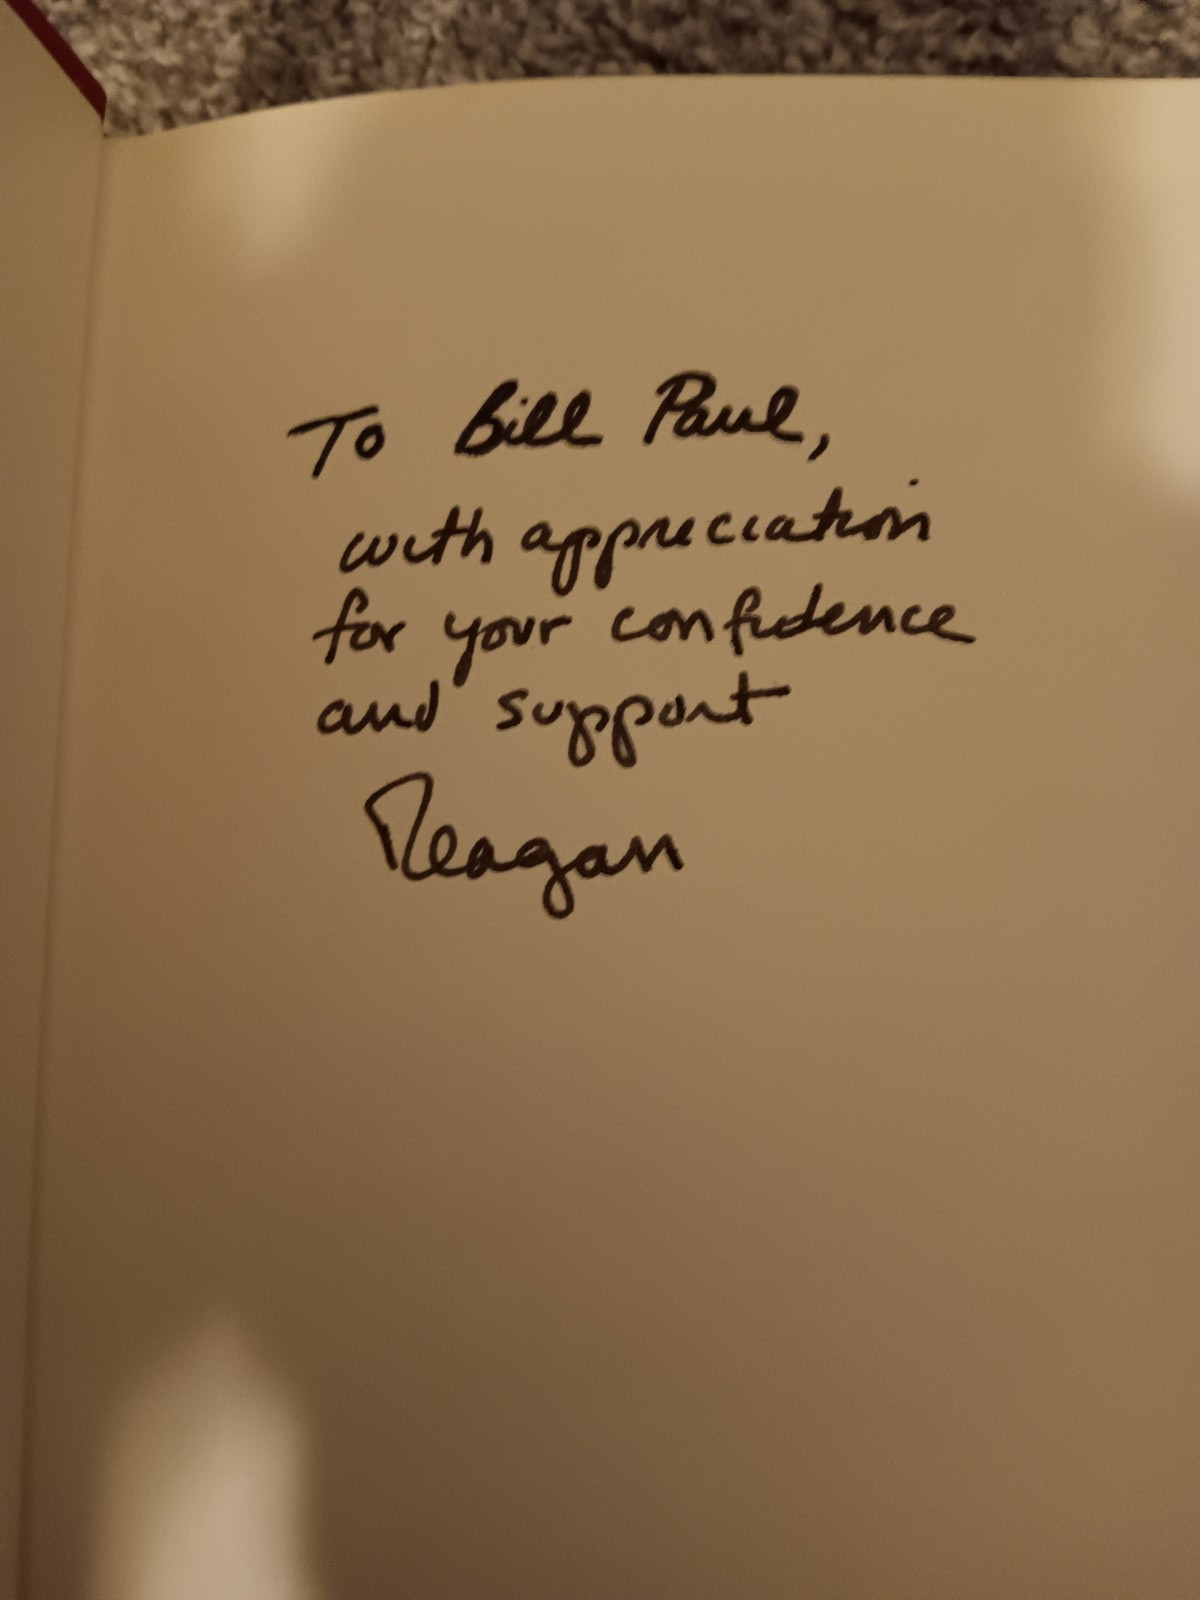 To Bill Paul,
with appreciation
for your confidence
and support
Reagan